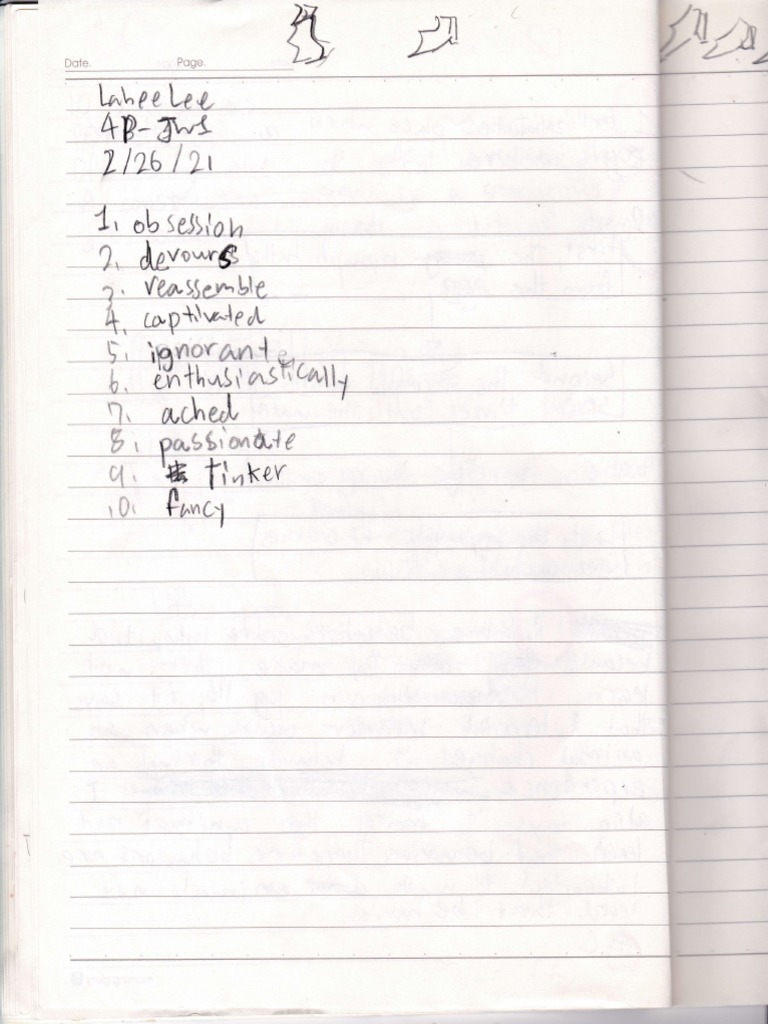 Date. Page.
Lahee Lee
4B-JWS
2/26/21
1. obsession
2. devours
3. reassemble
4. captivated
5. ignorant
6. enthusiastically
7. ached
8. passionate
9. tinker
10. fancy